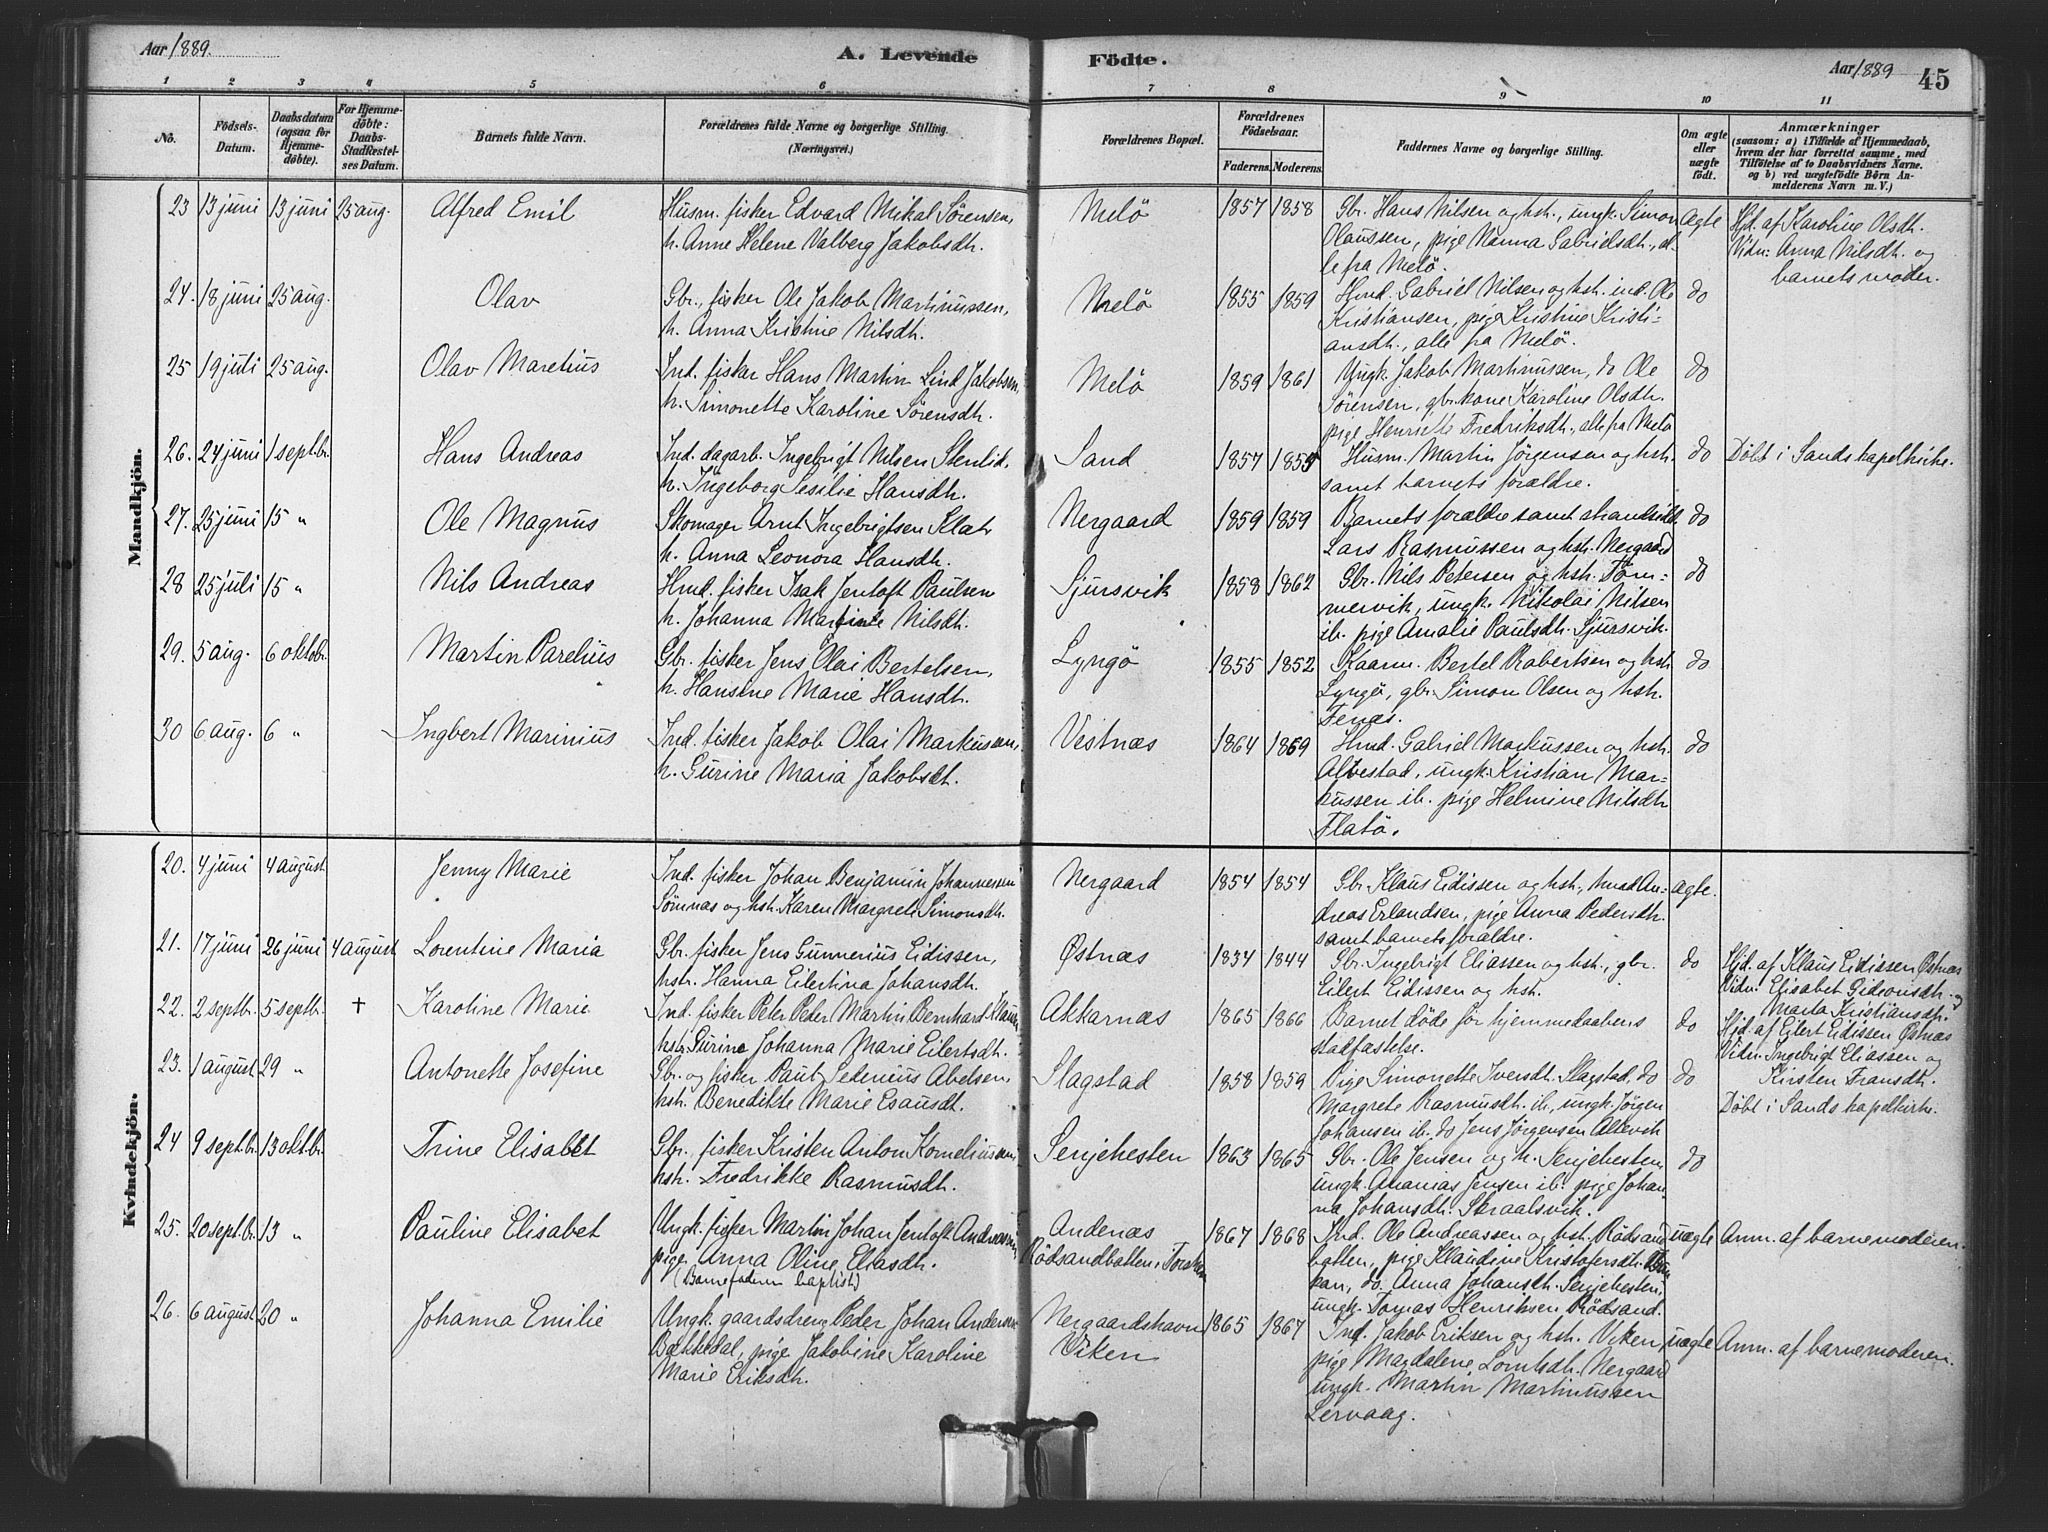 Aar 1889. A. Levende Födte. Aar 1889 45
1 2 3 4 5 6 7 8 9 10 11
No. Födsels-Datum. Daabsdatum (ogsaa for Hjemmedöbte). For Hjemmedöbte: Daabs-Stadfæstelses Datum. Barnets fulde Navn. Forældrenes fulde Navne og borgerlige Stilling. (Næringsvei.) Forældrenes Bopæl. Forældrenes Födselsaar. Faderens. Moderens. Faddernes Navne og borgerlige Stilling. Om ægte eller uægte födt. Anmærkninger (saasom: a) i Tilfælde af Hjemmedaab, hvem der har forrettet samme, med Tilföielse af to Daabsvidners Navne. og b) ved uægtefödte Börn Anmelderens Navn m. V.)
Mandkjön.
23 13 juni 13 juni 25 aug. Alfred Emil Husm. fisker Edvard Mikal Sörensen, Melö 1857 1858 Gbr. Hans Nilsen og hst., ungk. Simon Ægte Hjd. af Karoline Olsdh.
h. Anne Helene Valberg Jakobsdh. Olaussen, pige Nanna Gabrielsdh., al- Vidn: Anna Nilsdh. og
le fra Melö. barnets moder.
24. 18 juni 25 aug. Olav Gbr., fisker Ole Jakob Martinussen, Melö 1855 1859 Hmd. Gabriel Nilsen og hst. ind. Ole do
h. Anna Kristine Nilsdh. Kristiansen, pige Kristine Kristi-
ansdh., alle fra Melö.
25 19 juli 25 aug. Olav Maretius Ind. fisker Hans Martin Lind Jakobsen, Melö 1859 1861 Ungk. Jakob Martinussen, do Ole do
h. Simonette Karoline Sörensdh. Sörensen, gbr. kone Karoline Olsdh.
pige Henriette Fredriksdh., alle fra Melö
26. 24 juni 1 septbr. Hans Andreas Ind. dagarb. Ingebrigt Nilsen Stenlid, Sand 1857 1855 Husm. Martin Jörgensen og hst. do Döbt i Sands kapelkirke.
h. Ingeborg Sesilie Hansdh. samt barnets forældre.
27. 25 juni 15 " Ole Magnus Skomager Arnt Ingebrigtsen Klæt Nergaard 1859 1859 Barnets forældre samt strandsidd. do
h. Anna Leonora Hansdh. Lars Rasmussen og hst. Nergaard
28 25 juli 15 " Nils Andreas Hmd. fisker Isak Jentoft Paulsen Sjursvik 1858 1862 Gbr. Nils Petersen og hst. Töm- do
h. Johanna Martine Nilsdh. mervik, ungk. Nikolai Nilsen
ib. pige Amalie Paulsdh. Sjursvik.
29. 5 aug. 6 oktobr. Martin Parelius Gbr. fisker Jens Olai Bertelsen, Lyngö 1855 1852 Kaarm. Bertel Robertsen og hst. do
h. Hansine Marie Hansdh. Lyngö, gbr. Simon Olsen og hst.
Tenæs.
30 6 aug. 6 " Ingbert Marinius Ind. fisker Jakob Olai Markussen, Vestnæs 1864 1869 Hmd. Gabriel Markussen og hst. do
h. Gurine Maria Jakobsdt. Alvestad, ungk. Kristian Mar-
kussen ib. pige Helmine Nilsdh
Flatö.
Kvindekjön.
20. 4 juni 4 august Jenny Marie Ind. fisker Johan Benjamin Johannessen Nergaard 1854 1854 Gbr. Klaus Eidissen og hst., hmd An- ægte.
Sömnæs og hst. Karen Margrete Simonsdh. dreas Erlandsen, pige Anna Pedersdh.
samt barnets forældre.
21. 17 juni 26 juni 4 august Lorentine Maria Gbr. fisker Jens Gunnerius Eidissen, Østnæs 1834 1844 Gbr. Ingebrigt Eliassen og hst., gbr. do Hjd. af Klaus Eidissen Østnæs
hstr. Hanna Eilertina Johansdh. Eilert Eidissen og hst. Vidn: Elisabet Gideonsdh. og
Marta Kristiansdh.
22. 2 septbr. 5 septbr. † Karoline Marie Ind. fisker Peter Peder Martin Bernhard Klausen, Akkarnæs 1865 1866 Barnet döde för hjemmedaabens do Hjd. af Eilert Eidissen Østnæs
hstr. Gurine Johanna Marie Eilertsdh. stadfæstelse. Vidn. Ingebrigt Eliassen og
Kirsten Fransdh.
23. 1 august 29 " Antonette Josefine Gbr. og fisker Paul Sedenius Abelsen, Slagstad 1858 1859 Pige Simonette Iversdh. Slagstad, do do Döbt i Sands kapelkirke.
hst. Benedikte Marie Esausdt. Margrete Rasmusdh. ib., ungk. Jörgen
Johansen ib. do Jens Jörgensen Allevik
24 9 septbr. 13 oktbr. Trine Elisabet Gbr. fisker Kristen Anton Korneliussen, Senjehesten 1863 1865 Gbr. Ole Jensen og h. Senjehesten, do
hst. Fredrikke Rasmusdh. ungk. Ananias Jensen ib. pige Johan-
na Johansdh. Skraalsvik.
25. 20 septbr. 13 " Pauline Elisabet Ungk. fisker Martin Johan Jentoft Andreassen, Andenæs 1867 1868 Ind. Ole Andreassen og hst. Rödsand uægte Anm. af barnemoderen.
pige Anna Oline Eliasdh. Rödsandbotten i Torsken botten, pige Klaudine Kristofersdh.
(Barnefaderen baptist) kan, do. Anna Johansdt. Senjehesten,
ungk. Tomas Henriksen Rödsand.
26. 6 august 20 " Johanna Emilie Ungk. gaardsdreng Peder Johan Andersen Nergaardshavn 1865 1867 Ind. Jakob Eriksen og hst. Viken, uægte Anm. af barnemoderen.
Bakkedal, pige Jakobine Karoline Viken pige Magdalene Lorntsdh. Nergaard
Marie Eriksdh. ungk. Martin Martinussen
Lervaag.